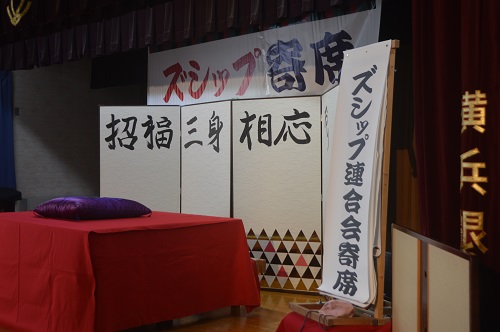 ズシップ寄席
招福 三身 相応
ズシップ連合会寄席
黄兵